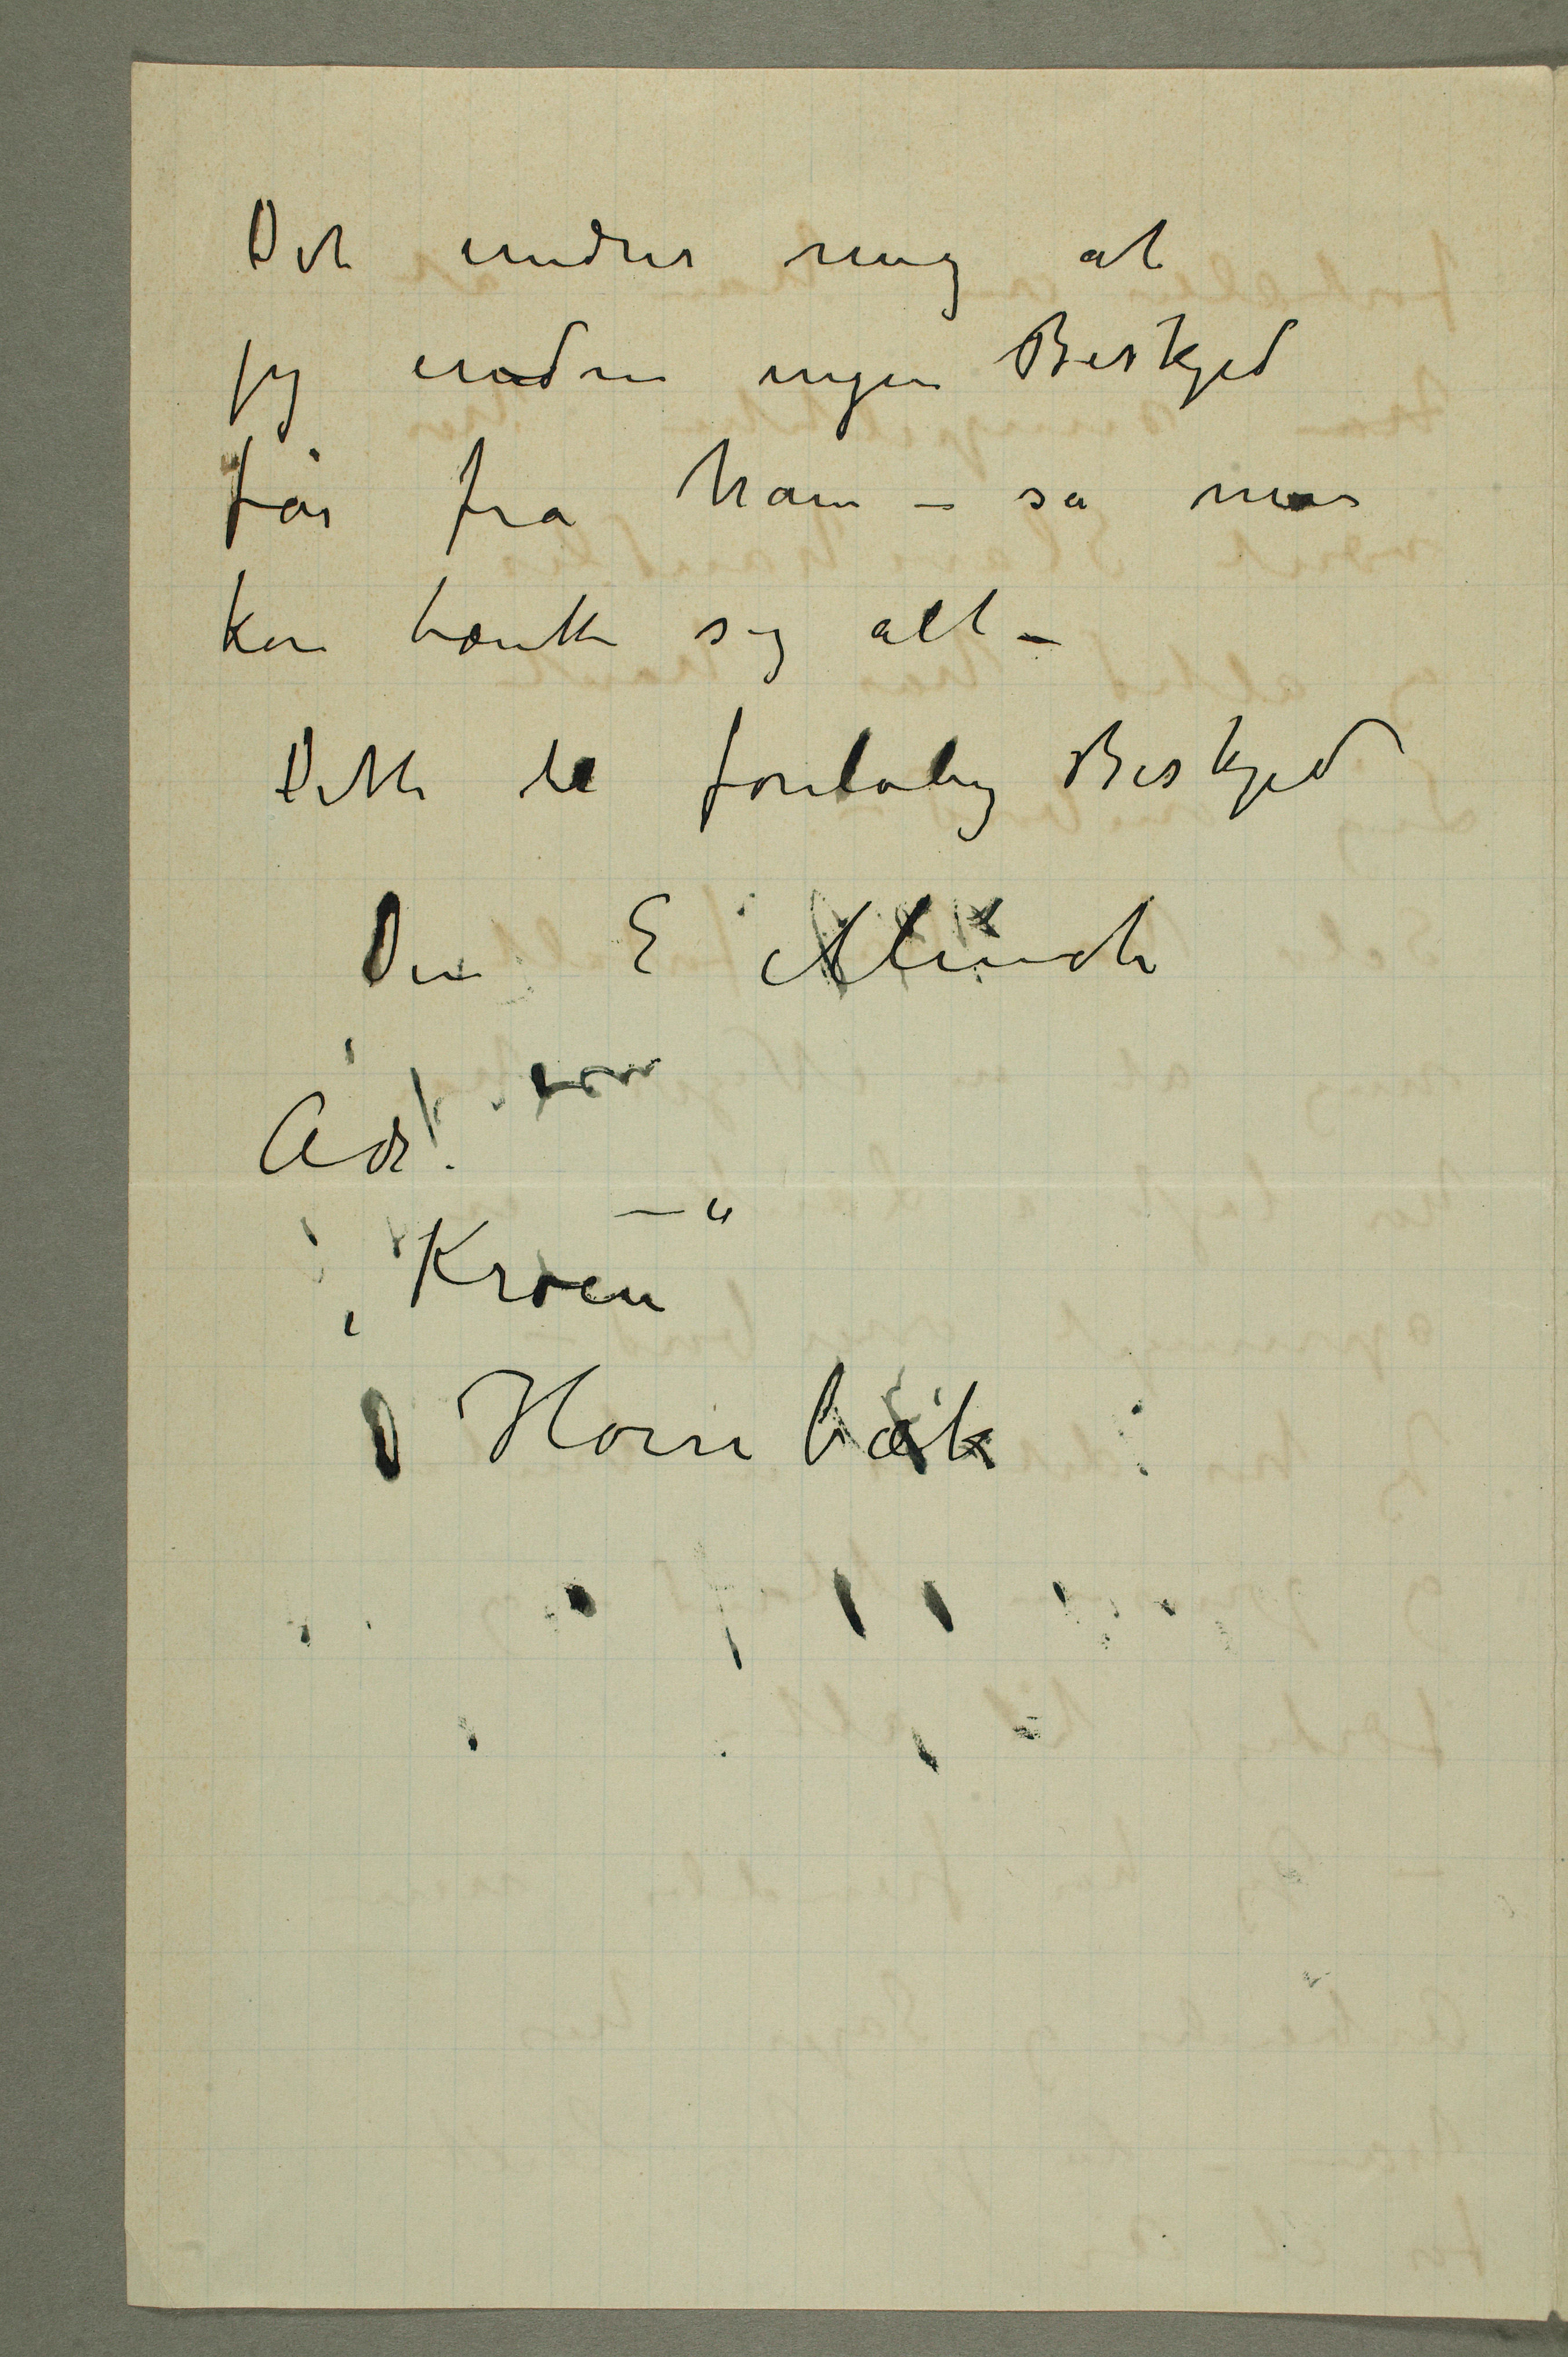 Det undrer mig at
jeg endnu ingen Beskjed
får fra ham – så man
kan tænke sig alt –
Dette til foreløbig Beskjed
Din E Munch
Adr.
„Kroen“
Hornbæk